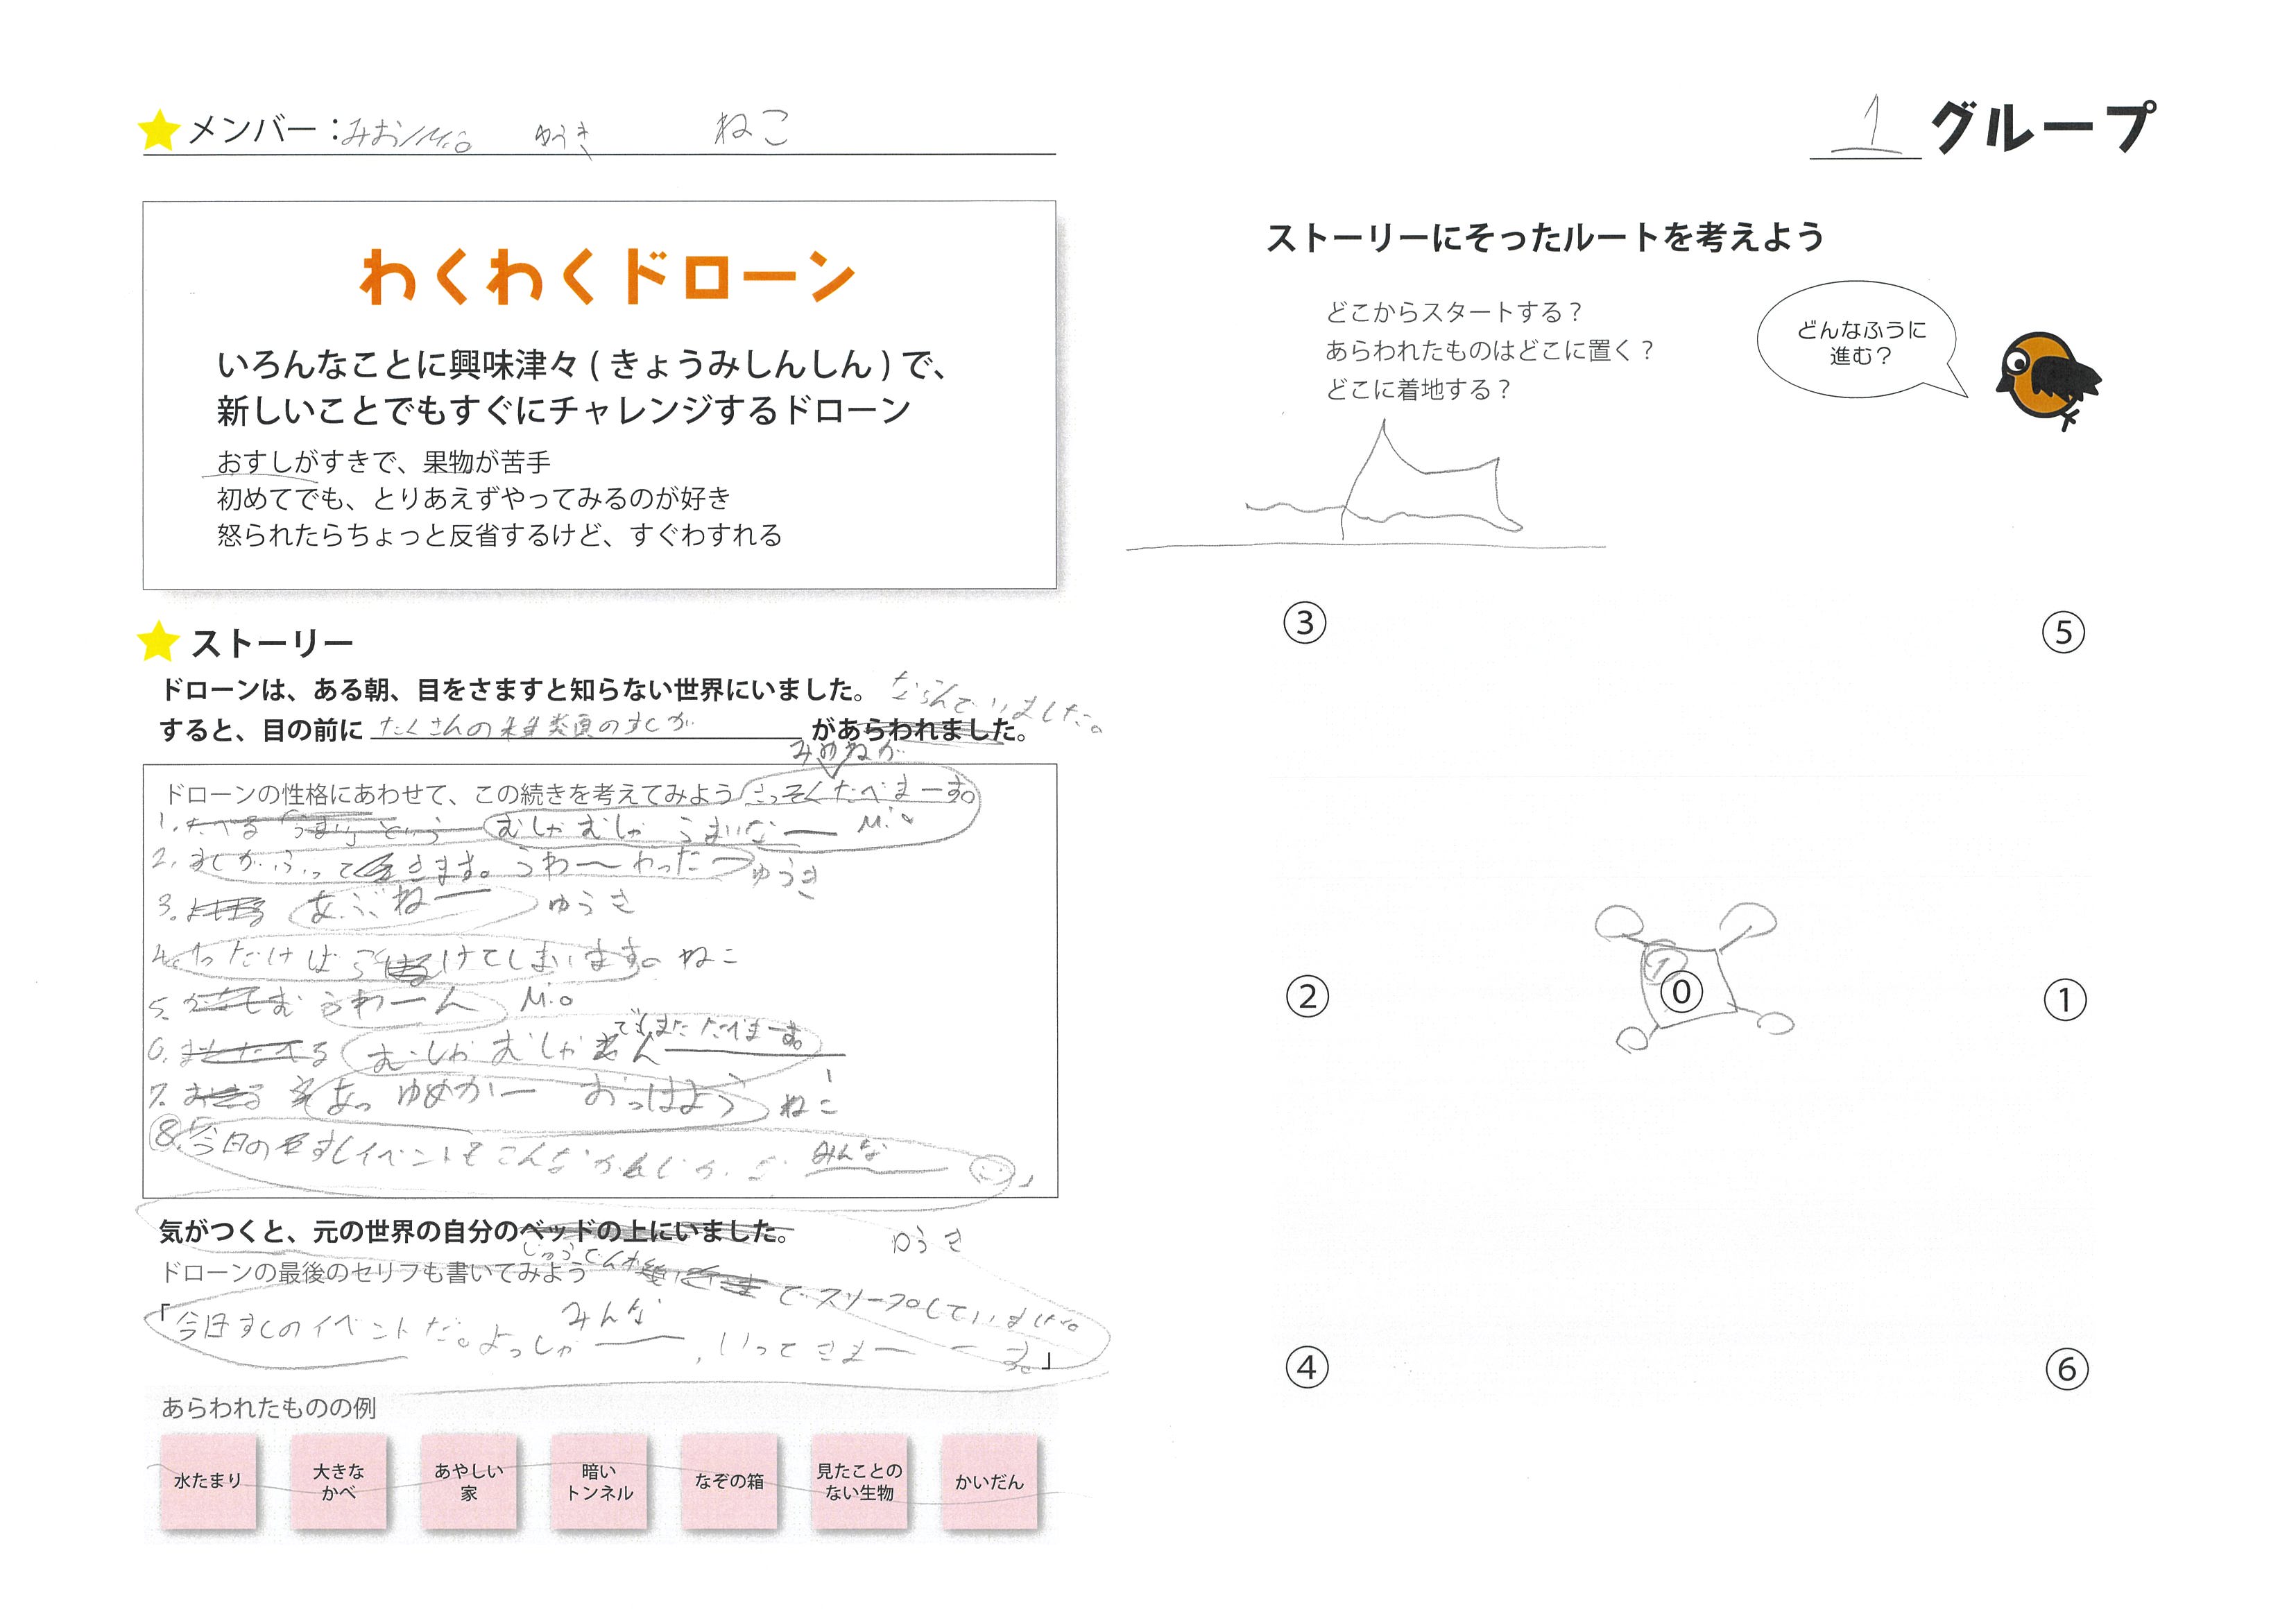 メンバー：みお/Mio ゆうき ねこ
1 グループ
わくわくドローン
いろんなことに興味津々(きょうみしんしん)で、
新しいことでもすぐにチャレンジするドローン
おすしがすきで、果物が苦手
初めてでも、とりあえずやってみるのが好き
怒られたらちょっと反省するけど、すぐわすれる
ストーリー
ドローンは、ある朝、目をさますと知らない世界にいました。
ならんでいました。
すると、目の前に たくさんの種類のすしが があらわれました。
ドローンの性格にあわせて、この続きを考えてみよう さっそくたべまーす。
1. たべる「うまい」という むしゃむしゃ うまいなー Mio
2. すしがふってきます。うわーわったー ゆうき
3. あぶねー ゆうき
4. けてしまいます。ねこ
5. うわーん Mio
でもまたたべまーす。
6. またたべる むしゃむしゃ
7. おきる あっゆめかー おっはよう ねこ
8. 今日のすしイベントもこんなかんじかな みんな
気がつくと、元の世界の自分のベッドの上にいました。
ゆうき
ドローンの最後のセリフも書いてみよう
でスリープしていました。
「今日すしのイベントだ。よっしゃー みんな、いってきまーーす。」
あらわれたものの例
水たまり
大きな
かべ
あやしい
家
暗い
トンネル
なぞの箱
見たことの
ない生物
かいだん
ストーリーにそったルートを考えよう
どこからスタートする？
あらわれたものはどこに置く？
どこに着地する？
どんなふうに
進む？
③
⑤
②
⓪
①
④
⑥